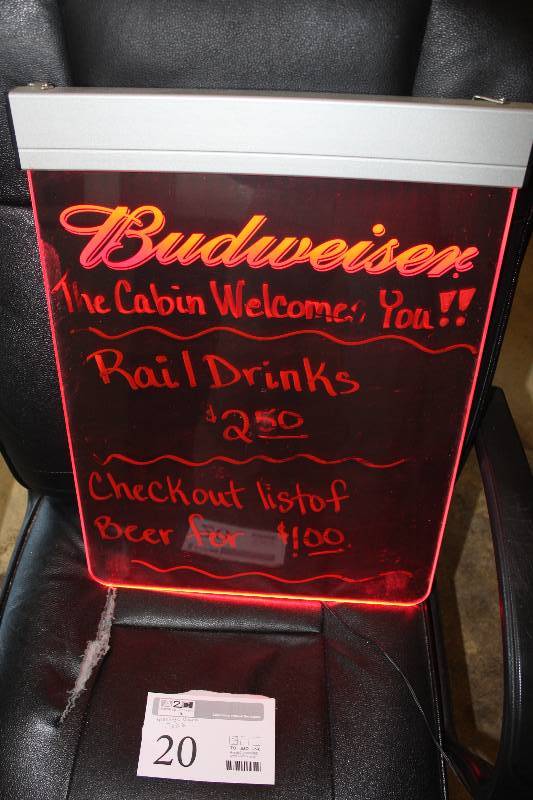 Budweiser
The Cabin Welcomes You!!
Rail Drinks
$250
Checkout list of
Beer for $1.00
20